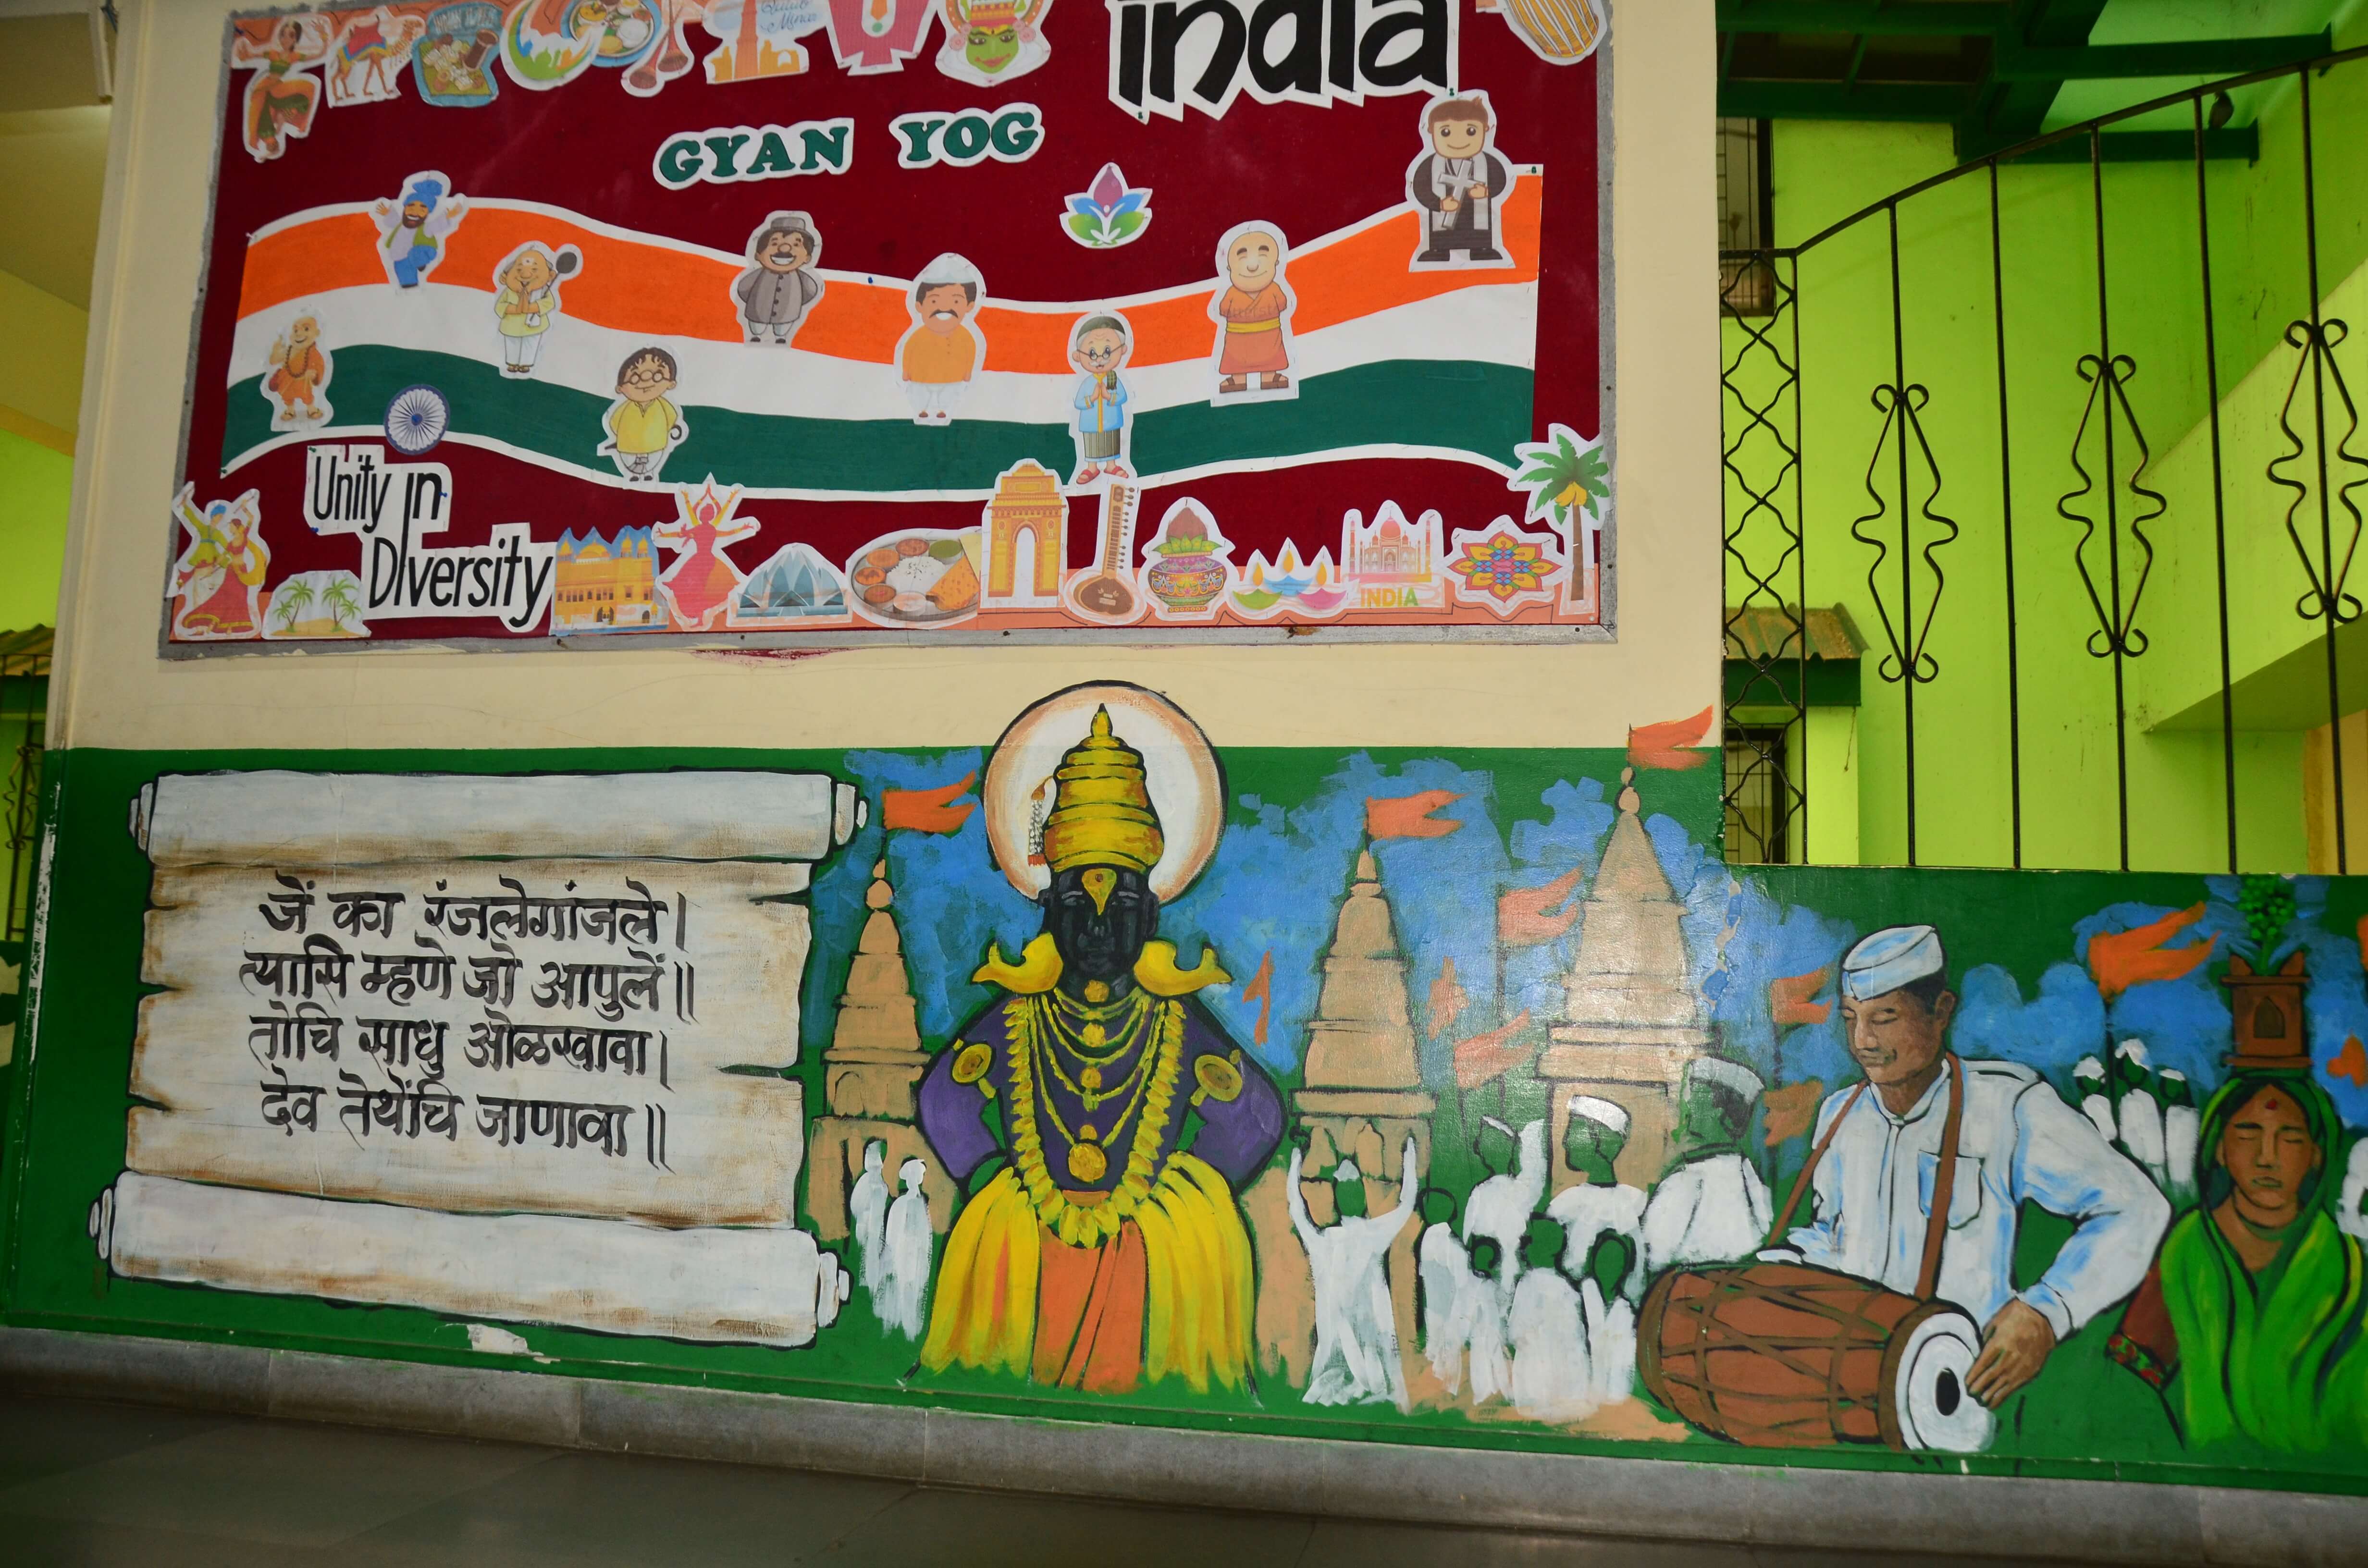 Qutub Minar
india
GYAN YOG
Unity in
Diversity
INDIA
जें का रंजलेगांजले।
त्यासि म्हणे जो आपुलें॥
तोचि साधु ओळखावा।
देव तेथेंचि जाणावा॥